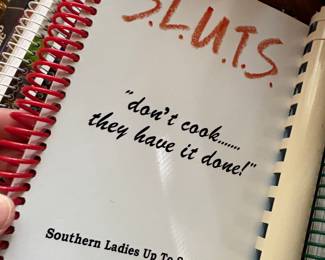 S.L.U.T.S.
"don't cook.......
they have it done!"
Southern Ladies Up To